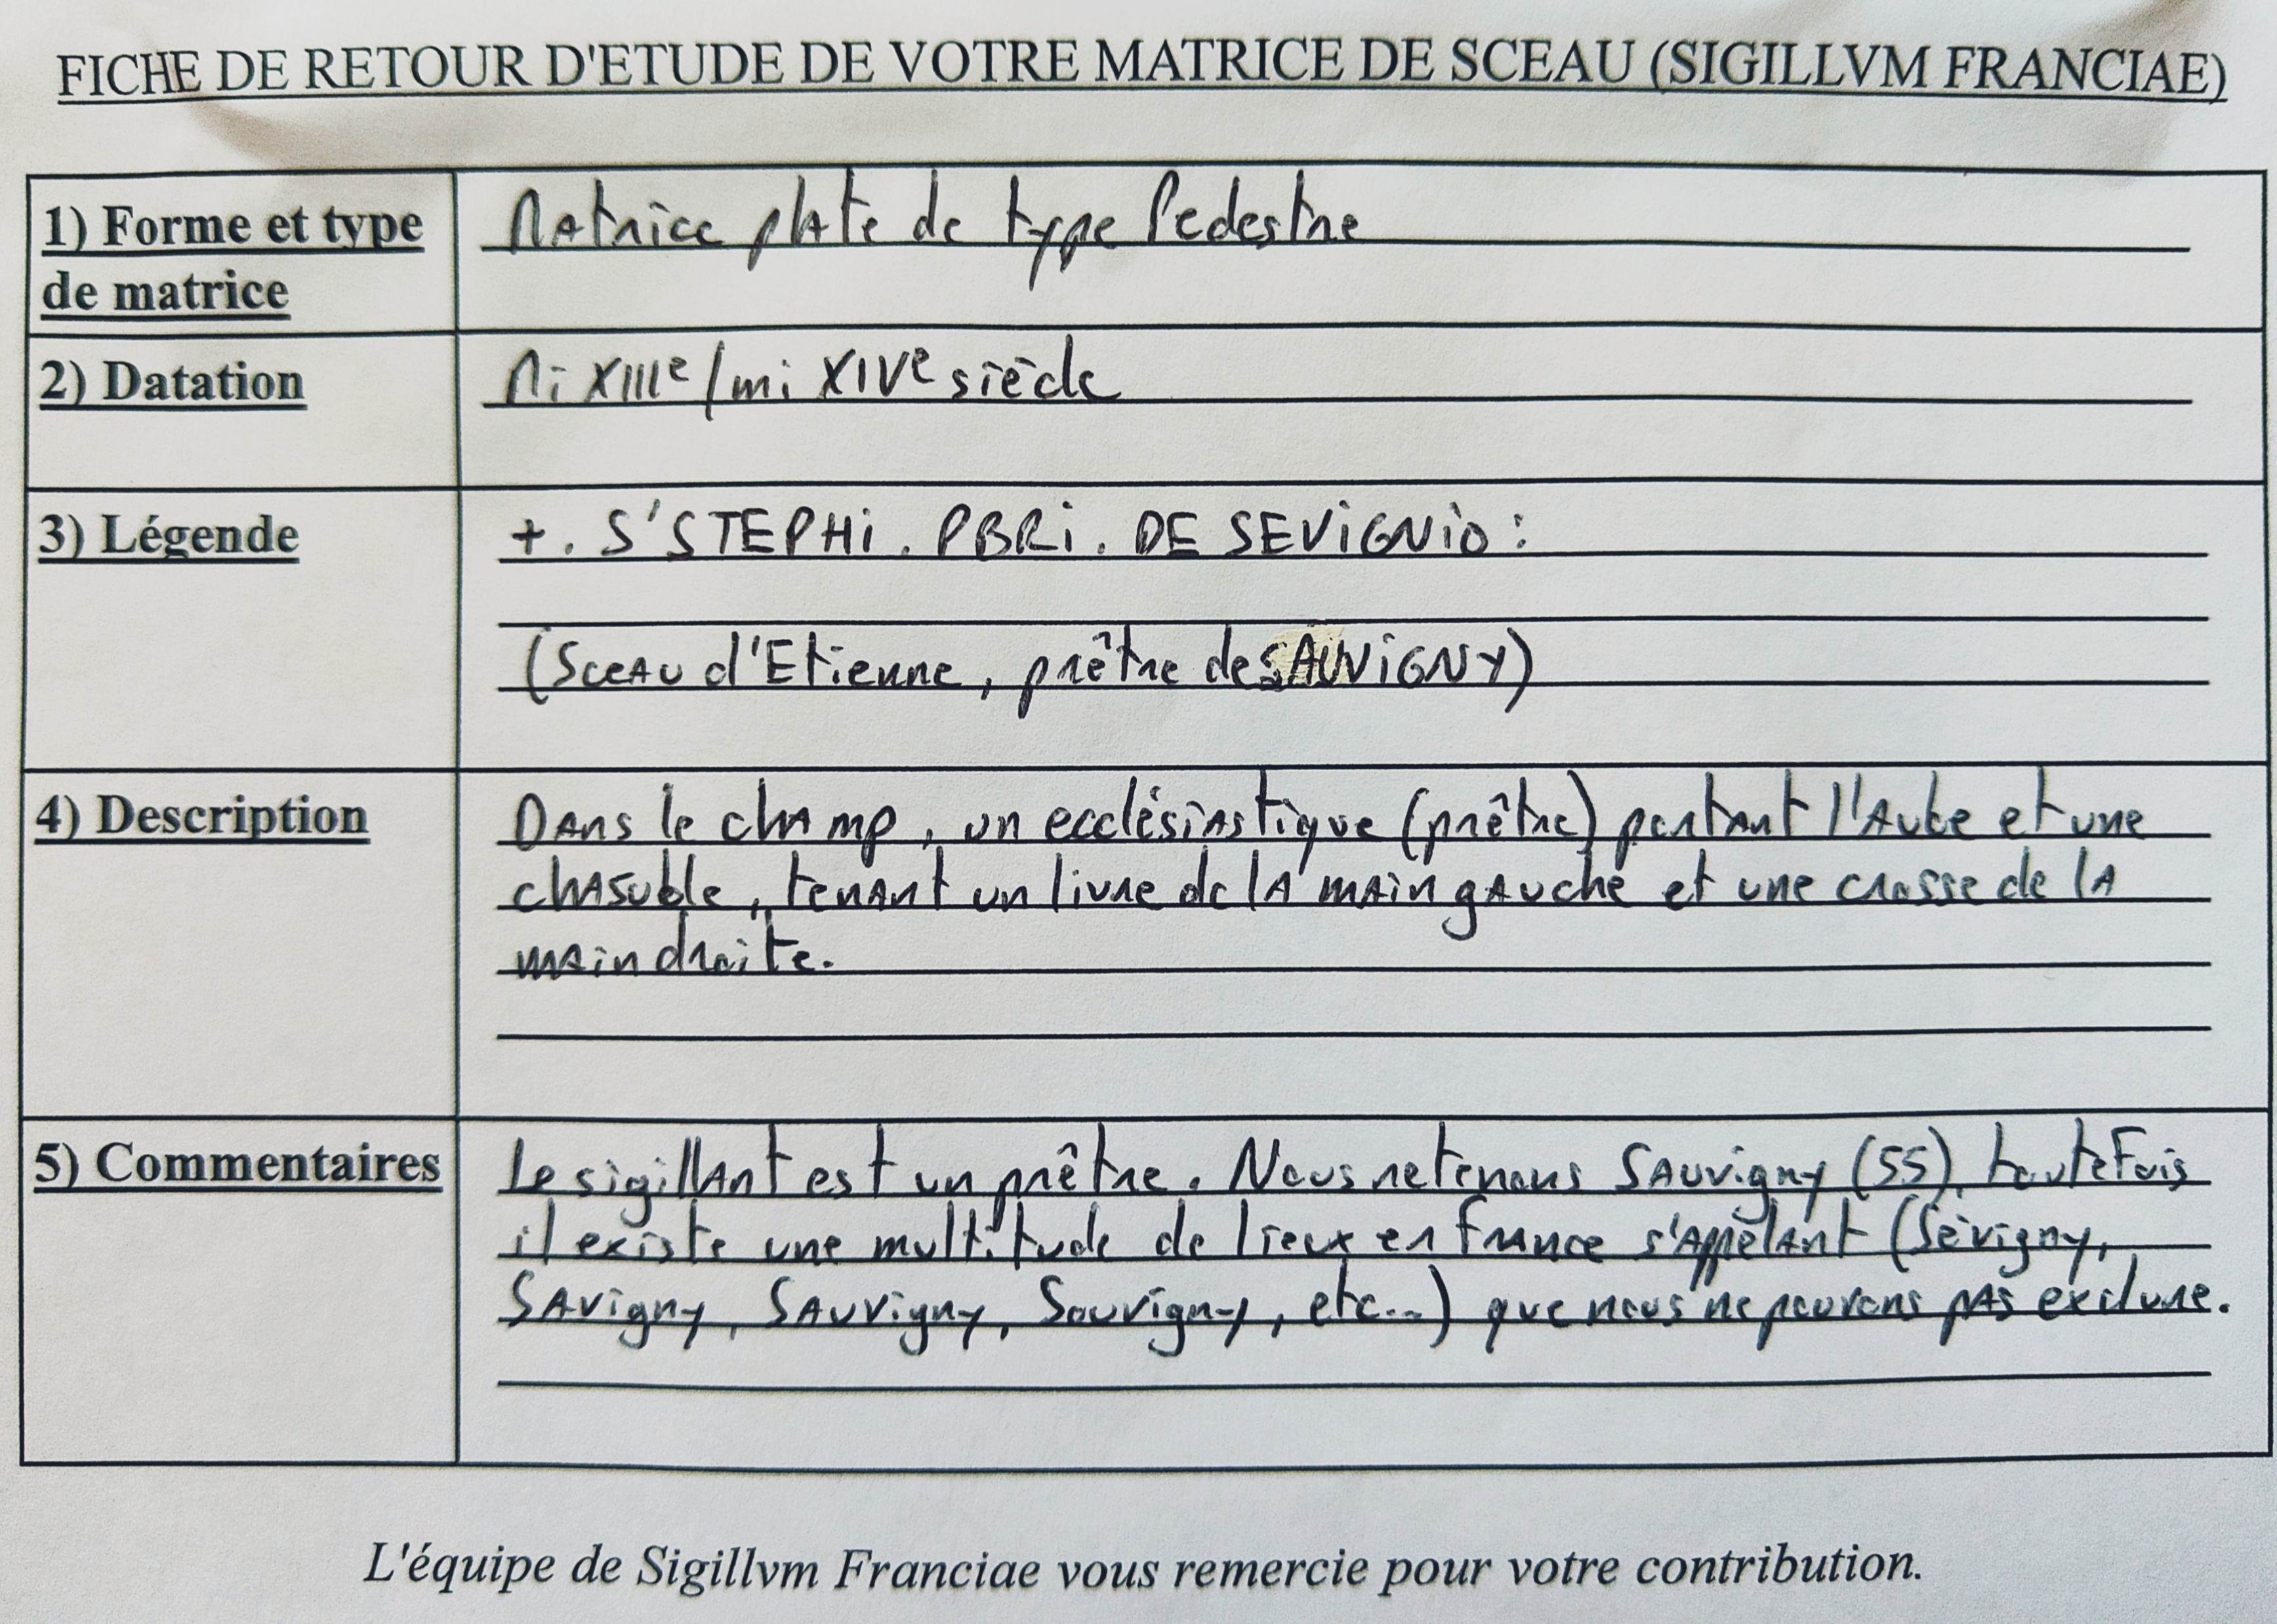 FICHE DE RETOUR D'ETUDE DE VOTRE MATRICE DE SCEAU (SIGILLVM FRANCIAE)
1) Forme et type
de matrice
Matrice plate de type Pedestre
2) Datation
Mi XIIIe/mi XIVe siècle
3) Légende
+. S'STEPHI. PBRI. DE SEVIGNIO:
(Sceau d'Etienne, prêtre de SAUVIGNY)
4) Description
Dans le champ, un ecclésiastique (prêtre) portant l'Aube et une
chasuble, tenant un livre de la main gauche et une crosse de la
main droite.
5) Commentaires
Le sigillant est un prêtre. Nous retenons Sauvigny (55), toutefois
il existe une multitude de lieux en France s'appelant (Sévigny,
Savigny, Sauvigny, Souvigny, etc...) que nous ne pouvons pas exclure.
L'équipe de Sigillvm Franciae vous remercie pour votre contribution.